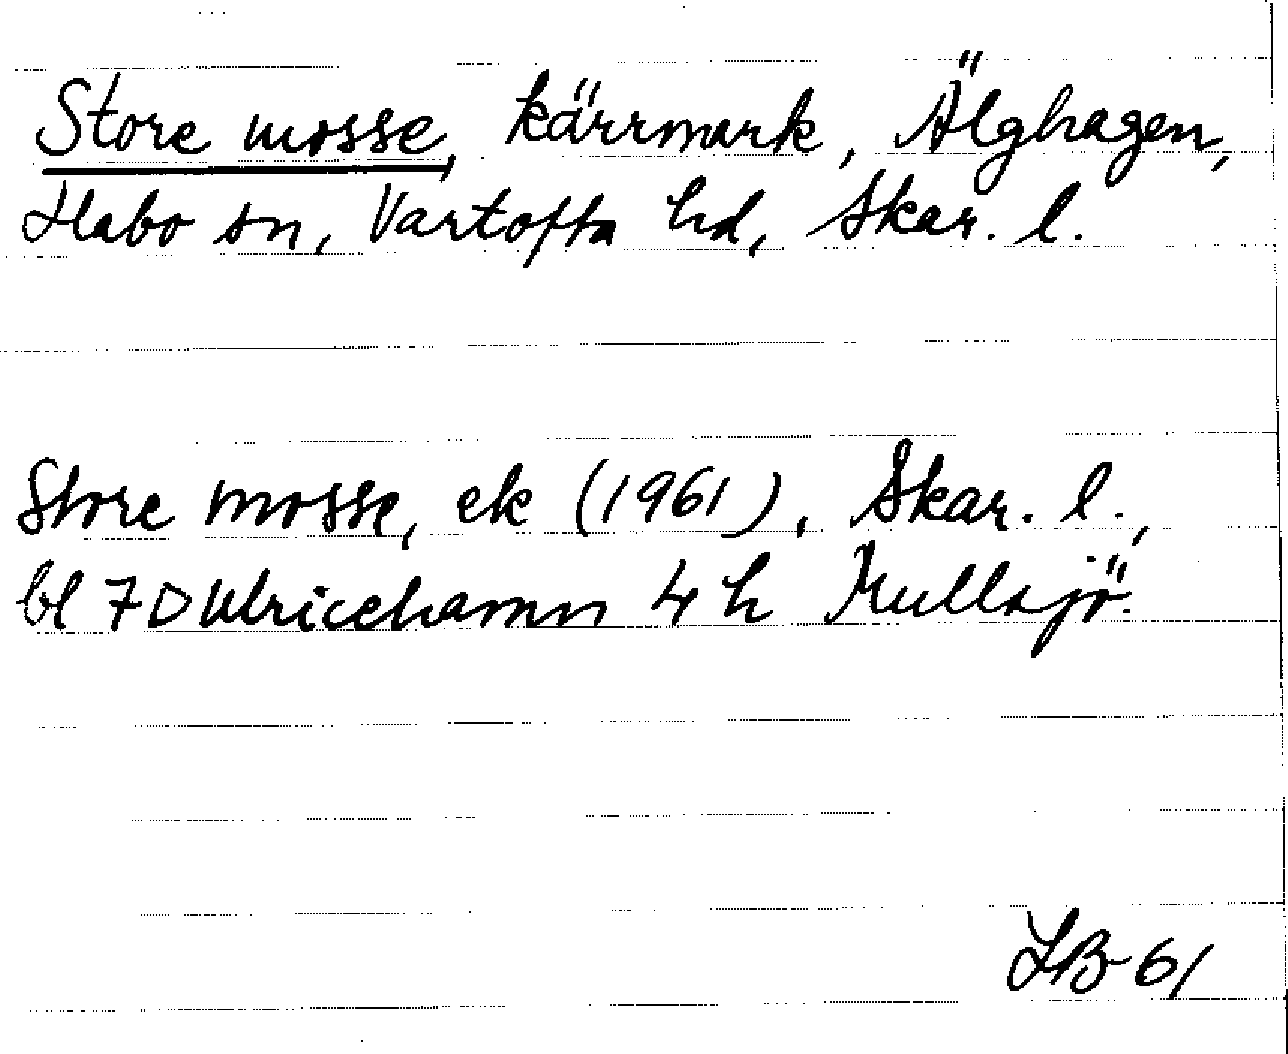 Store mosse, kärrmark, Älghagen,
Habo sn, Vartofta hd, Skar. l.
Store mosse, ek (1961), Skar. l.,
bl 7D Ulricehamn 4 h Mullsjö.
LB-61